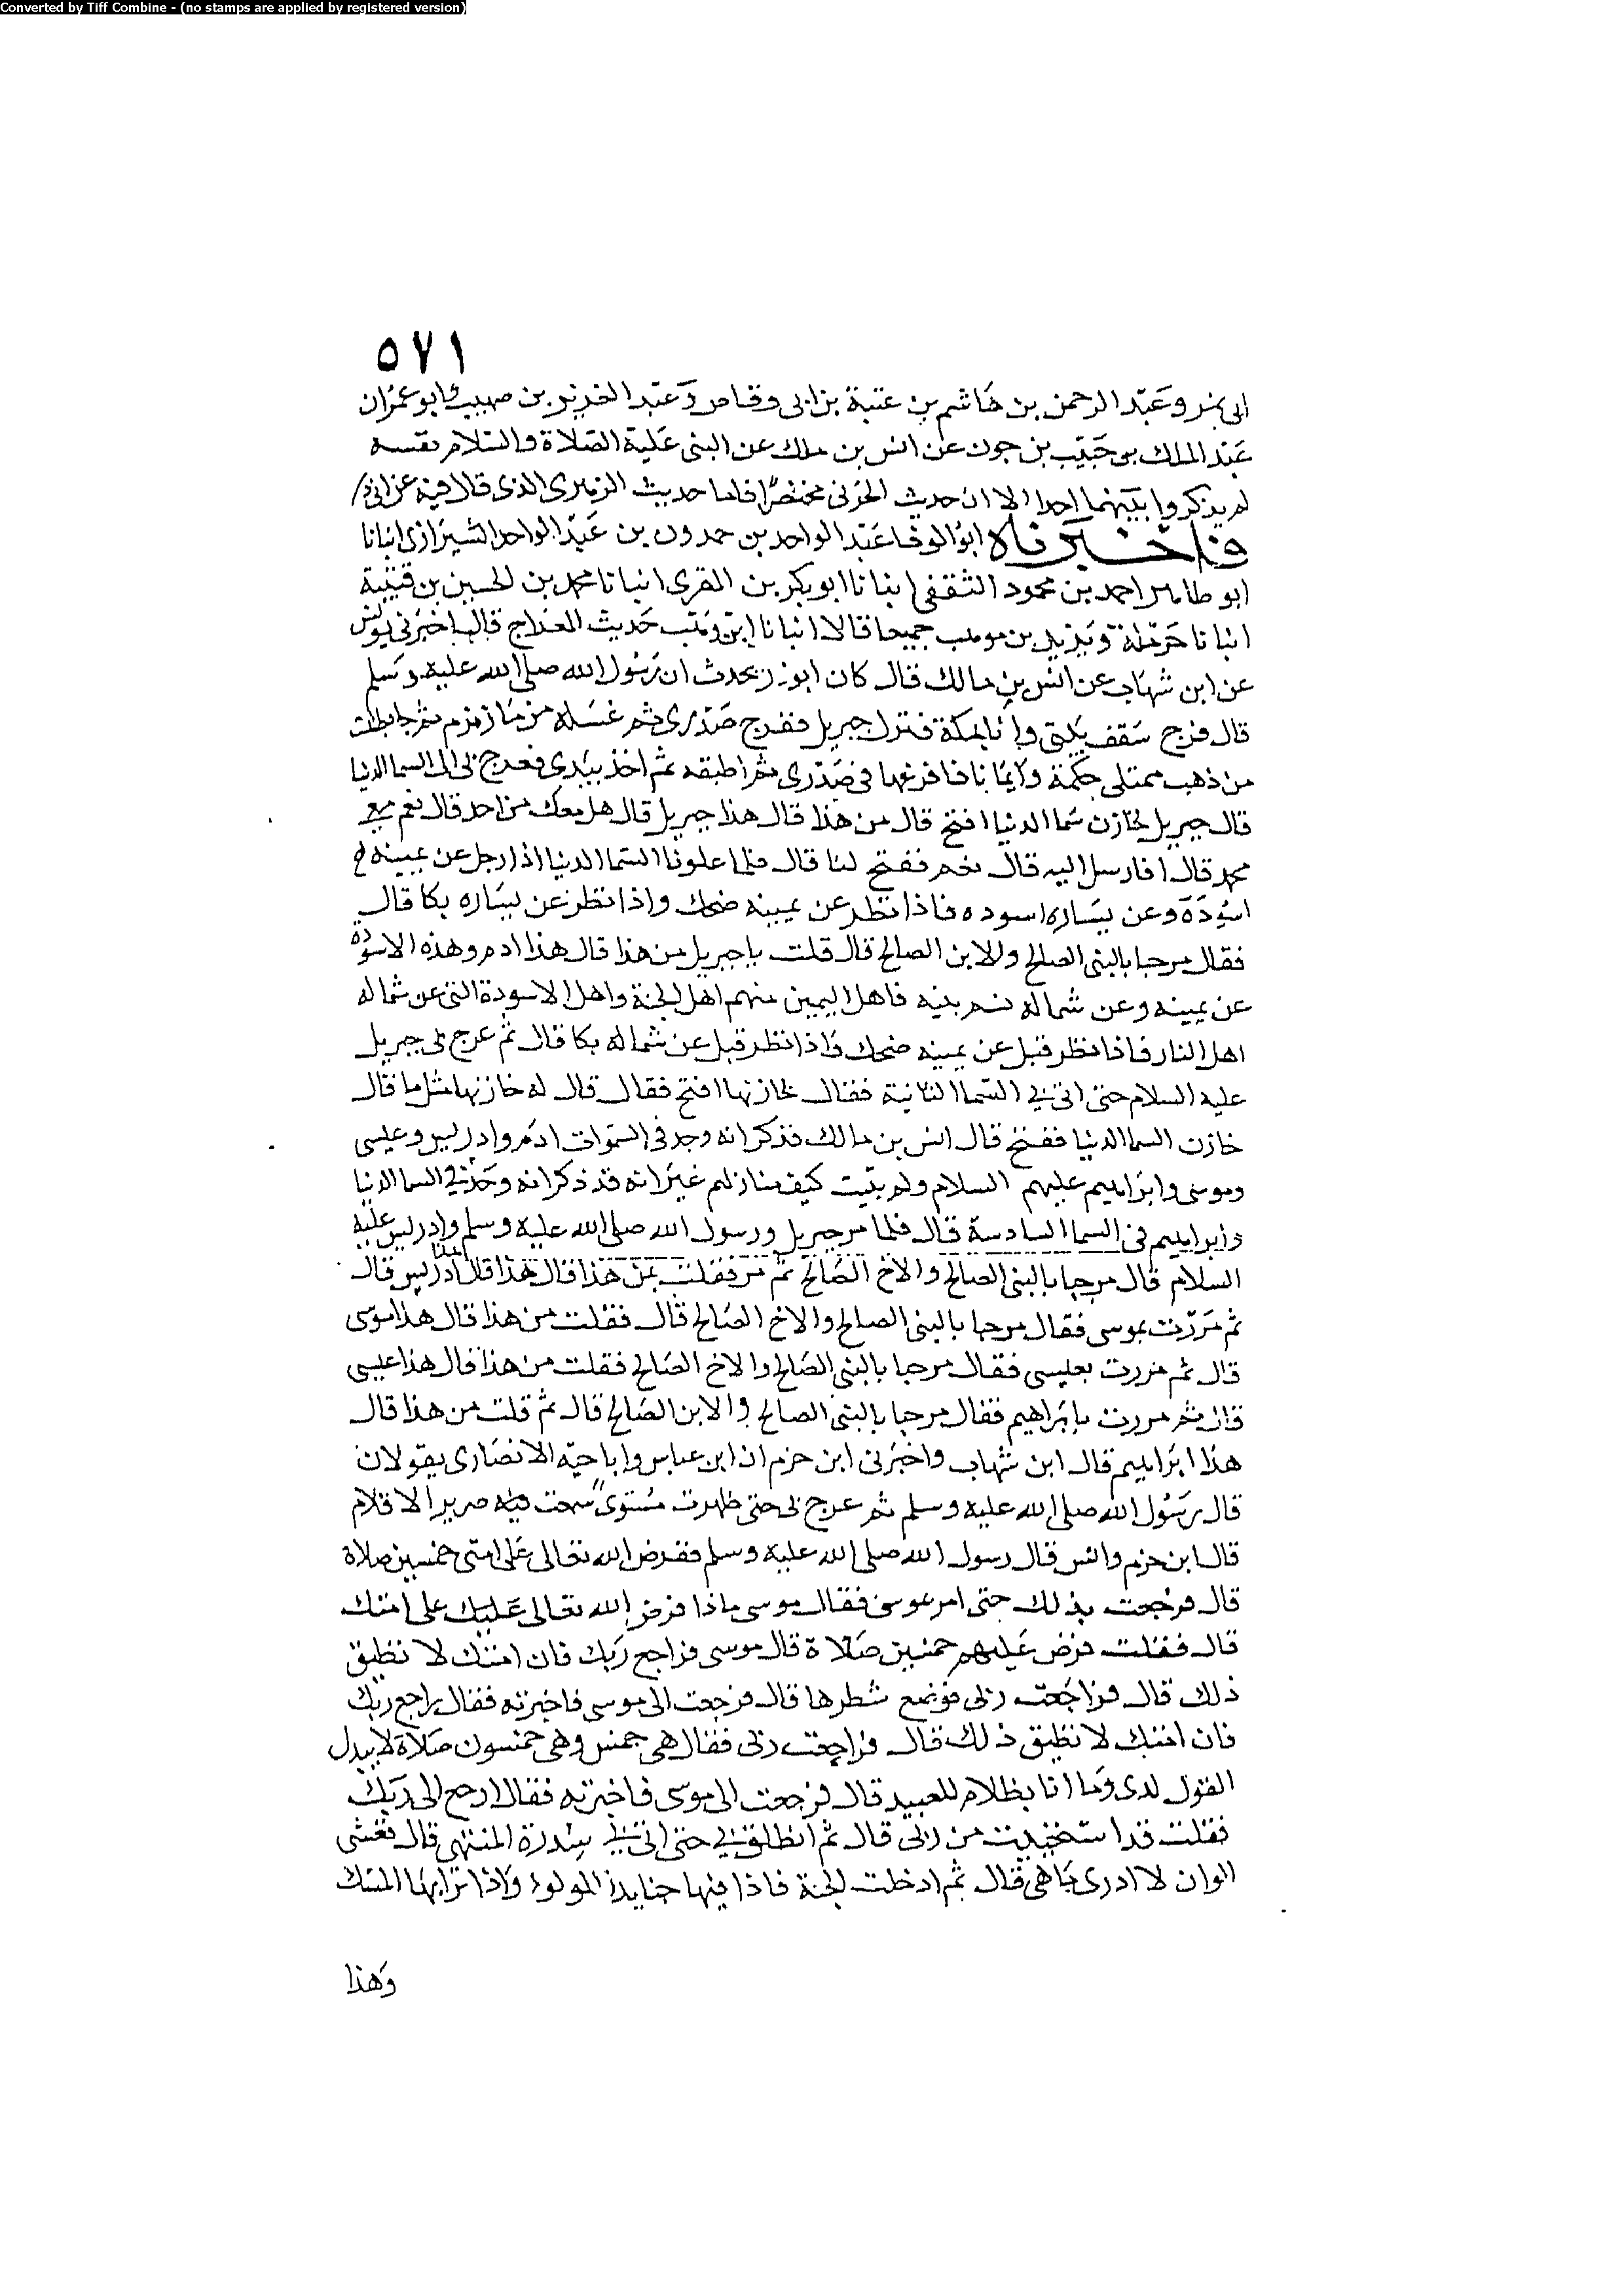 Converted by Tiff Combine - (no stamps are applied by registered version)
٥٧١
ابى نمر وعبد الرحمن بن هاشم بن عتبة بن ابى وقاص وعبد العزيز بن صهيب وابو عمران
عبد الملك بن حبيب بن جون عن انس بن ملك عن النبى عليه الصلاة والسلام نفسه
لم يذكروا بينهما احدا الا ان حديث الجونى مختصرا فاما حديث الزهرى الذى قال فيه عن ابى ذر
فاخبرناه ابو الوفا عبد الواحد بن حمدون بن عبد الواحد الشيرازى انبانا
ابو طاهر احمد بن محمود الثقفى انبانا ابو بكر بن المقرى انبانا محمد بن الحسين بن قتيبة
انبانا حرملة ويزيد بن موهب جميعا قالا انبانا ابن وهب حديث المعراج قال اخبرنى يونس
عن ابن شهاب عن انس بن مالك قال كان ابوذر يحدث ان رسول الله صلى الله عليه وسلم
قال فرج سقف بيتى وانا بمكة فنزل جبريل ففرج صدرى ثم غسله من ما زمزم ثم جا بطست
من ذهب ممتلى حكمة وايمانا فافرغها فى صدرى ثم اطبقه ثم اخذ بيدى فعرج بى الى السما الدنيا
قال جبريل لخازن سما الدنيا افتح قال من هذا قال هذا جبريل قال هل معك من احد قال نعم معى
محمد قال افارسل اليه قال نعم ففتح لنا قال فلما علونا السما الدنيا اذا رجل عن يمينه
اسودة وعن يساره اسوده فاذا نظر عن يمينه ضحك واذا نظر عن يساره بكا قال
فقال مرحبا بالنبى الصالح والابن الصالح قال قلت يا جبريل من هذا قال هذا ادم وهذه الاسودة
عن يمينه وعن شماله نسم بنيه فاهل اليمين منهم اهل الجنة واهل الاسودة التى عن شماله
اهل النار فاذا نظر قبل عن يمينه ضحك واذا نظر قبل عن شماله بكا قال ثم عرج بى جبريل
عليه السلام حتى اتى بى السما الثانية فقال لخازنها افتح فقال قال له خازنها مثل ما قال
خازن السما الدنيا ففتح قال انس بن مالك فذكر انه وجد فى السموات ادم وادريس وعيسى
وموسى وابراهيم عليهم السلام ولم يثبت كيف منازلهم غير انه قد ذكر انه وجد فى السما الدنيا
وابراهيم فى السما السادسة قال فلما مر جبريل ورسول الله صلى الله عليه وسلم وادريس عليه
السلام قال مرحبا بالنبى الصالح والاخ الصالح ثم مر فقلت من هذا قال هذا ادريس قال
ثم مررت بموسى فقال مرحبا بالنبى الصالح والاخ الصالح قال فقلت من هذا قال هذا موسى
قال ثم مررت بعيسى فقال مرحبا بالنبى الصالح والاخ الصالح فقلت من هذا قال هذا عيسى
قال ثم مررت بابراهيم فقال مرحبا بالنبى الصالح والابن الصالح قال ثم قلت من هذا قال
هذا ابراهيم قال ابن شهاب واخبرنى ابن حزم ان ابن عباس وابا حبة الانصارى يقولان
قال رسول الله صلى الله عليه وسلم ثم عرج بى حتى ظهرت مستوى سمعت فيه صرير الاقلام
قال ابن حزم وانس قال رسول الله صلى الله عليه وسلم ففرض الله تعالى على امتى خمسين صلاة
قال فرجعت بذلك حتى امر بموسى فقال موسى ماذا فرض الله تعالى عليك على امتك
قال فقلت فرض عليهم خمسين صلاة قال موسى فراجع ربك فان امتك لا تطيق
ذلك قال فراجعت ربى فوضع شطرها قال فرجعت الى موسى فاخبرته فقال راجع ربك
فان امتك لا تطيق ذلك قال فراجعت ربى فقال هى خمس وهى خمسون صلاة لا يبدل
القول لدى وما انا بظلام للعبيد قال فرجعت الى موسى فاخبرته فقال ارجع الى ربك
فقلت قد استحييت من ربى قال ثم انطلق بى حتى اتى بى سدرة المنتهى قال فغشى
الوان لا ادرى ما هى قال ثم ادخلت الجنة فاذا فيها جنابذ اللولو واذا ترابها المسك
وهذا